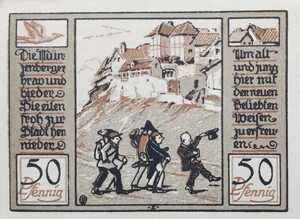 Die Mün-
zenberger
brav und
bieder
Sie eilen
froh zur
Stadt her
nieder
50
Pfennig
Um alt
und jung
hier mit
der neuen
Beliebten
Weisen
zu erfreu-
en
50
Pfennig